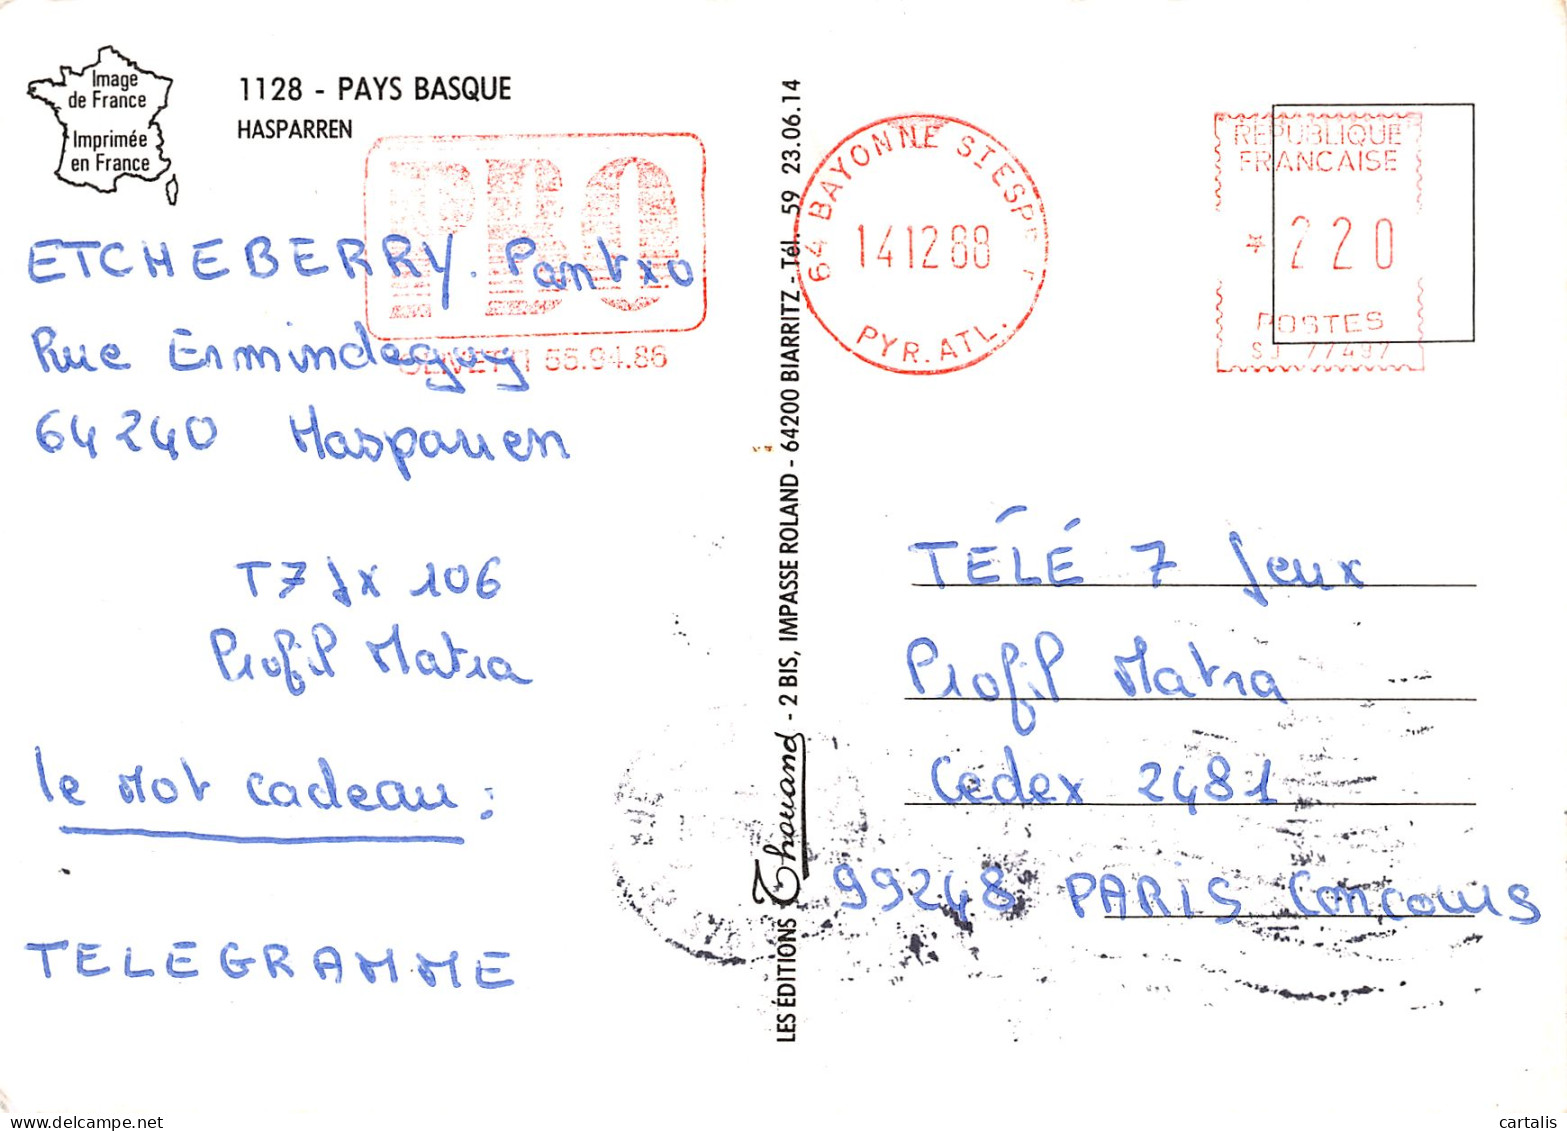 Image
de France
Imprimée
en France
1128 - PAYS BASQUE
HASPARREN
PBO
55.94.86
ETCHEBERRY. Pantxo
Rue Ermindeguy
64240 Hasparren
T7 Jx 106
Profil Matra
le Mot cadeau :
TELEGRAMME
LES ÉDITIONS Thouand - 2 BIS, IMPASSE ROLAND - 64200 BIARRITZ - Tél. 59 23.06.14
64 BAYONNE ST ESPRIT
14 12 88
PYR. ATL.
REPUBLIQUE
FRANCAISE
* 220
POSTES
SJ 77497
TÉLÉ 7 Jeux
Profil Matra
Cedex 2481
99248 PARIS Concours
cartalis